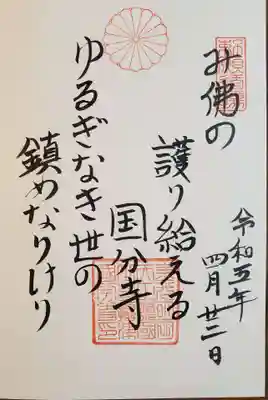 み佛の
護り給える
国分寺
ゆるぎなき世の
鎮めなりけり
令和五年
四月廿二日